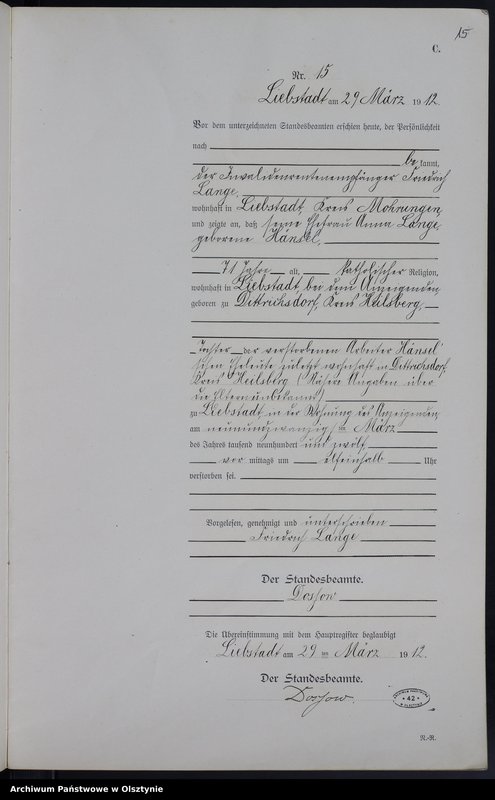 15
C.
Nr. 15
Liebstadt am 29 März 1912.
Vor dem unterzeichneten Standesbeamten erschien heute, der Persönlichkeit
nach
be kannt,
der Invalidenrentenempfänger Friedrich
Lange,
wohnhaft in Liebstadt, Kreis Mohrungen,
und zeigte an, daß seine Ehefrau Anna Lange,
geborene Hänsel,
71 Jahre alt, katholischer Religion,
wohnhaft in Liebstadt, bei dem Anzeigenden,
geboren zu Dittrichsdorf, Kreis Heilsberg,
Tochter der verstorbenen Arbeiter Hänsel'
schen Eheleute zuletzt wohnhaft in Dittrichsdorf,
Kreis Heilsberg (Nähere Angaben über
die Eltern unbekannt)
zu Liebstadt, in der Wohnung des Anzeigenden,
am neunundzwanzigsten März
des Jahres tausend neunhundert und zwölf
vor mittags um elfeinhalb Uhr
verstorben sei.
Vorgelesen, genehmigt und unterschrieben
Friedrich Lange
Der Standesbeamte.
Dossow
Die Übereinstimmung mit dem Hauptregister beglaubigt
Liebstadt am 29 ten März 1912.
Der Standesbeamte.
Dossow.
42
R.-R.
Archiwum Państwowe w Olsztynie